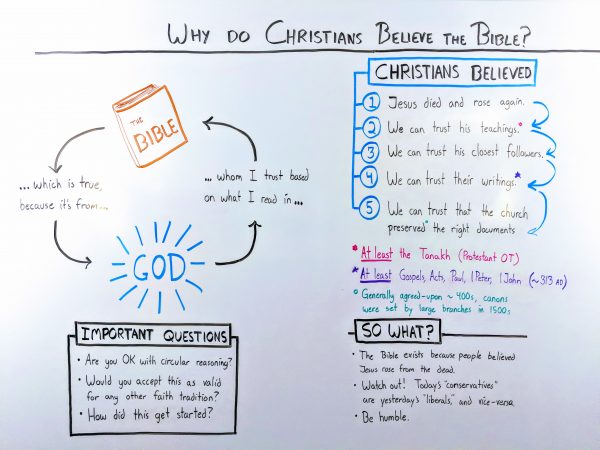 WHY DO CHRISTIANS BELIEVE THE BIBLE?
THE
BIBLE
... which is true,
because it's from...
... whom I trust based
on what I read in ...
GOD
IMPORTANT QUESTIONS
• Are you OK with circular reasoning?
• Would you accept this as valid
for any other faith tradition?
• How did this get started?
CHRISTIANS BELIEVED
1 Jesus died and rose again.
2 We can trust his teachings.*
3 We can trust his closest followers.
4 We can trust their writings.*
5 We can trust that the church
preserved° the right documents
* At least the Tanakh (Protestant OT)
* At least Gospels, Acts, Paul, 1 Peter, 1 John (~313 AD)
° Generally agreed-upon ~ 400s, canons
were set by large branches in 1500s
SO WHAT?
• The Bible exists because people believed
Jesus rose from the dead.
• Watch out! Today's "conservatives"
are yesterday's "liberals," and vice-versa.
• Be humble.